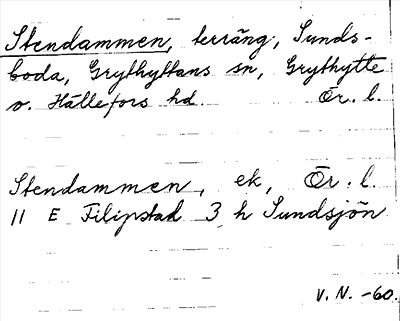 Stendammen, terräng, Sunds-
boda, Grythyttans sn, Grythytte
o. Hällefors hd. Ör. l.
Stendammen, ek, Ör. l.
11 E Filipstad 3 h Sundsjön
V. N. -60.